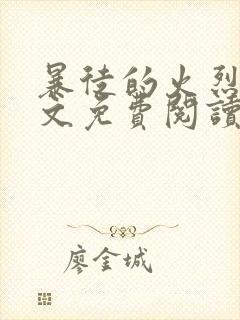 暴徒的火烈
文免費閱讀
廖金城